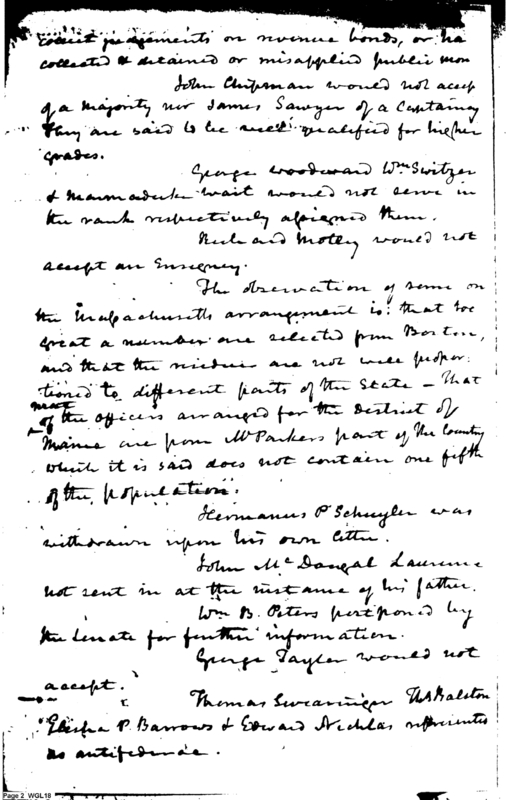 collect judgements on revenue bonds, or ha
collected & detained or misapplied public mon
John Chipman would not accep
of a Majority nor James Sawyer of a Captaincy
They are said to be well qualified for higher
grades.
George Woodward Wm Switzer
& Marmaduke Wait would not serve in
the rank respectively assigned them.
Richard Motley would not
accept an Ensigncy.
The observation of some on
the Massachusetts arrangement is: that too
great a number are selected from Boston,
and that the residue are not well propor
tioned to different parts of the State – That
most
of the officers arranged for the District of
Maine are from Mr Parkers part of the Country
which it is said does not contain one fifth
of the population.
Hermanus P Schuyler was
withdrawn upon his own letter.
John Mc Dougal Laurence
not sent in at the instance of his father.
Wm B. Peters postponed by
the Senate for further information.
George Tayler would not
accept.
Thomas Swearinger Ths Ralston
Elisha P. Barrows & Edward Nicklas represented
as antifederal.
Page 2 WGL18